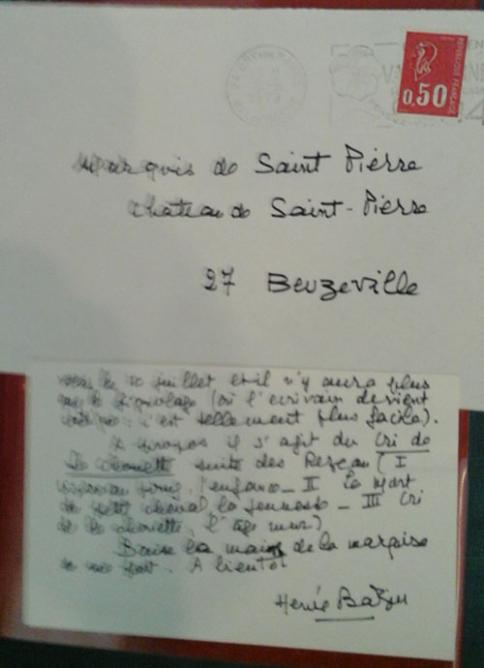 REPUBLIQUE FRANÇAISE
0,50
Marquis de Saint Pierre
Château de Saint-Pierre
27 Beuzeville
le 10 juillet et il n'y aura plus
(où l'écrivain devient
: c'est tellement plus facile).
A propos il s'agit du Cri de
la chouette suite des Rezeau (I
Vipère au poing, l'enfance_ II La mort
du petit cheval, la jeunesse _ III Cri
de la chouette, l'âge mur)
Baise la main de la marquise
de ma part. A bientôt
Hervé Bazin